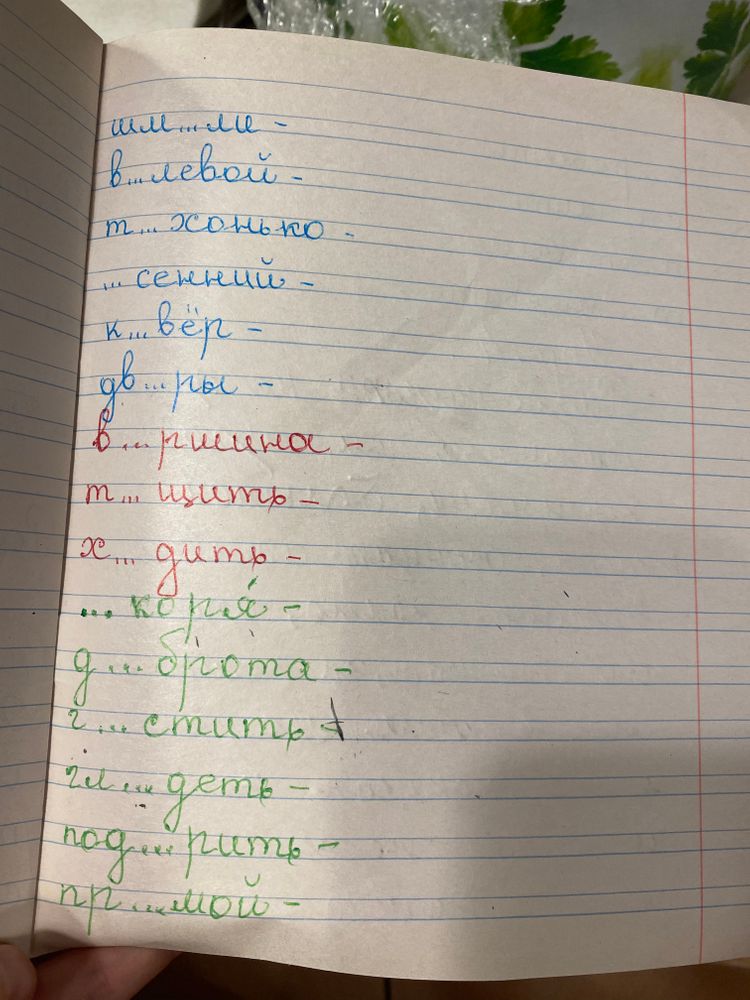 шм...ли -
в...левой -
т...хонько -
...сенний -
к...вёр -
дв...ры -
в...ршина -
т...щить -
х...дить -
...коря́ -
д...брота -
г...стить -
гл...деть -
под...рить -
пр...мой -